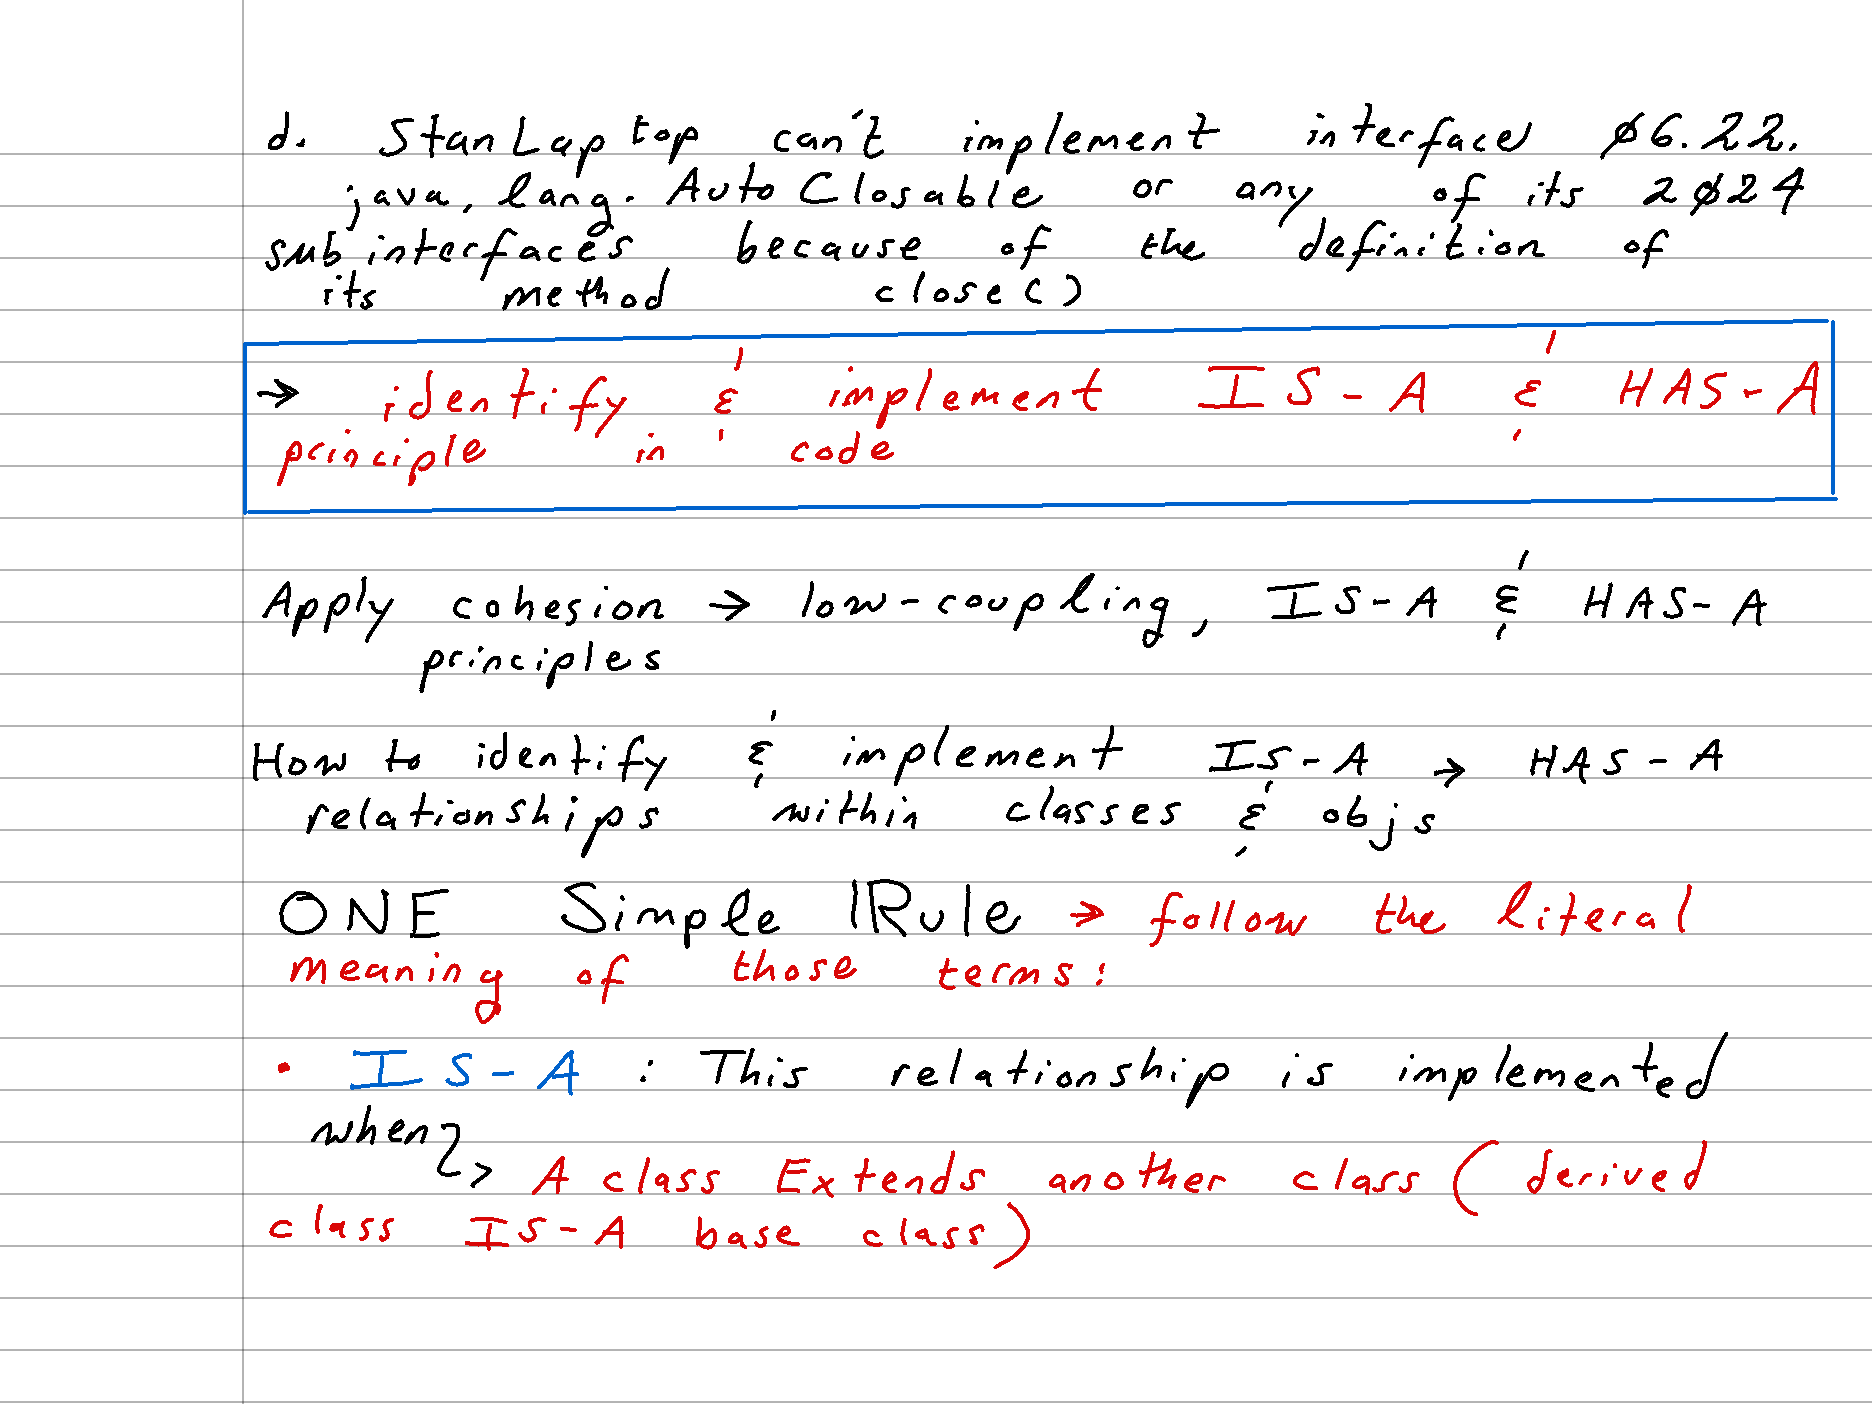 d. StanLaptop can't implement interface ø6.22.
java, lang. AutoClosable or any of its 2ø24
subinterfaces because of the definition of
its method close()
→ identify & implement IS-A & HAS-A
principle in code
Apply cohesion → low-coupling, IS-A & HAS-A
principles
How to identify & implement IS-A → HAS-A
relationships within classes & objs
ONE Simple Rule → follow the literal
meaning of those terms:
• IS-A : This relationship is implemented
when
→ A class Extends another class (derived
class IS-A base class)